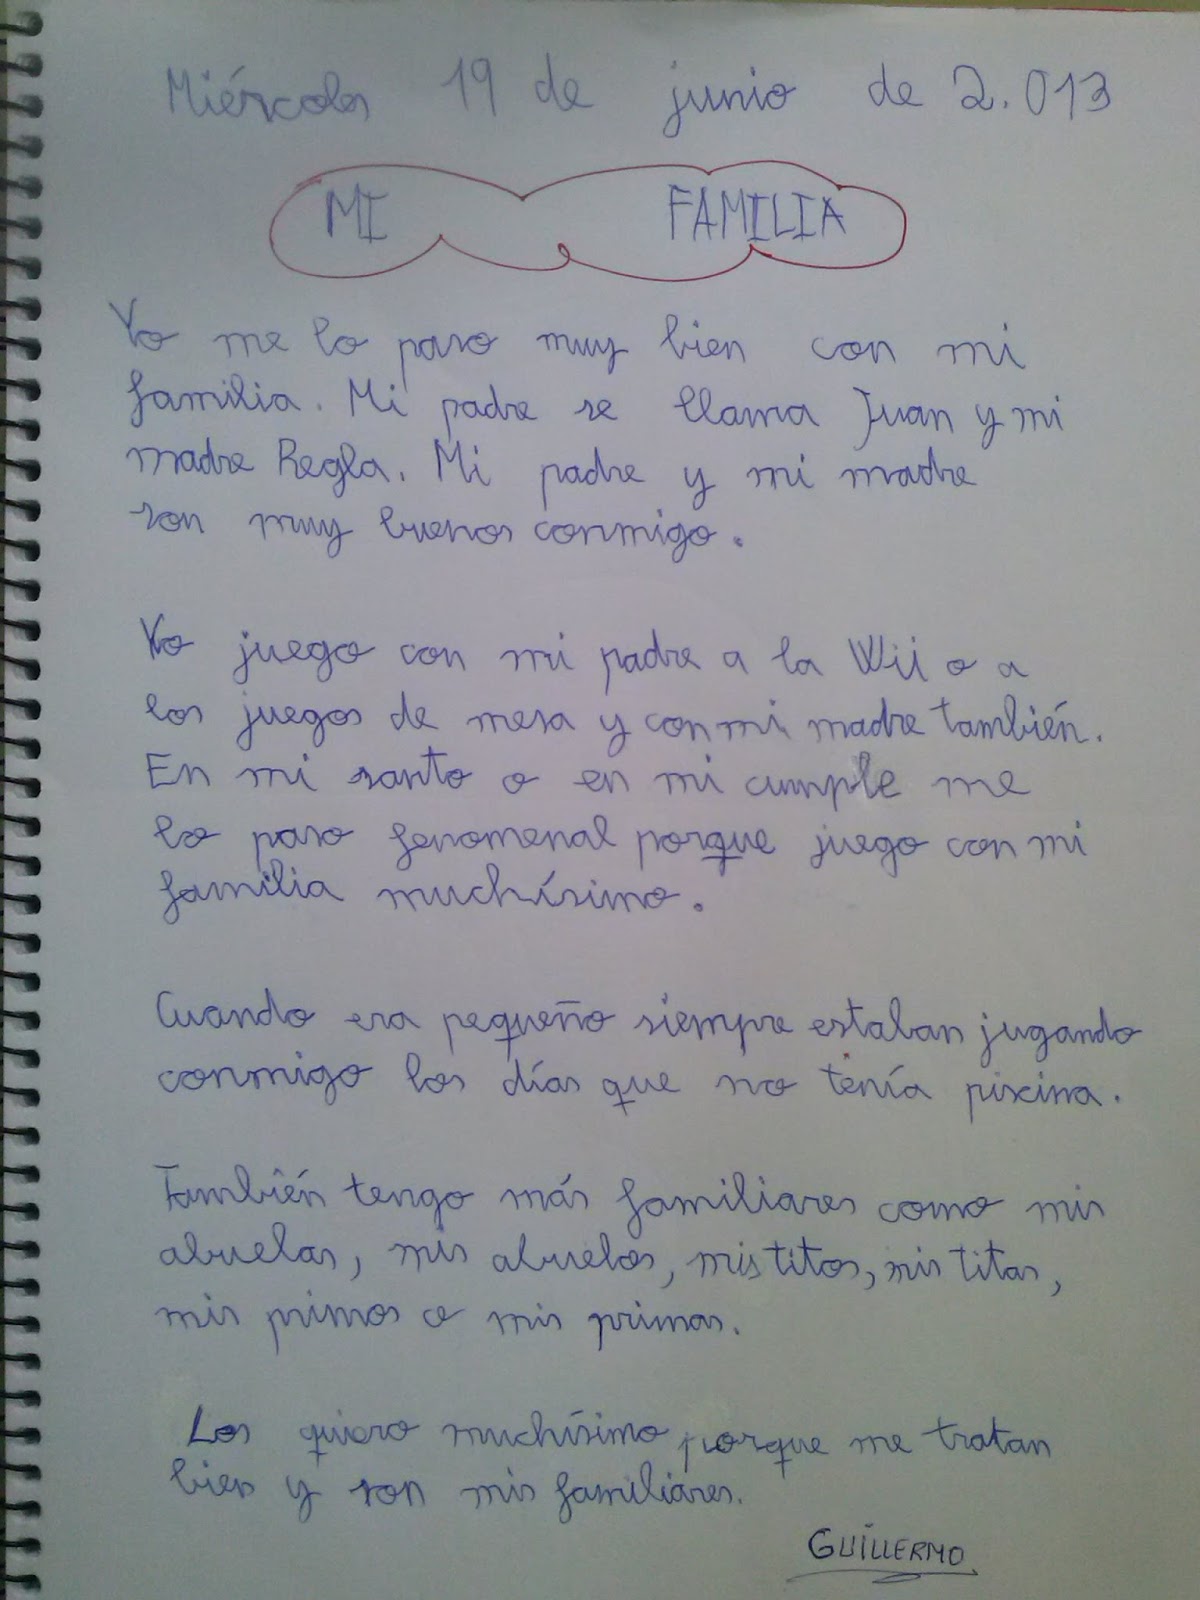 Miércoles 19 de junio de 2.013
MI FAMILIA
Yo me lo paso muy bien con mi
familia. Mi padre se llama Juan y mi
madre Regla. Mi padre y mi madre
son muy buenos conmigo.
Yo juego con mi padre a la Wii o a
los juegos de mesa y con mi madre también.
En mi santo o en mi cumple me
lo paso fenomenal porque juego con mi
familia muchísimo.
Cuando era pequeño siempre estaban jugando
conmigo los días que no tenía piscina.
También tengo más familiares como mis
abuelas, mis abuelos, mis titos, mis titas,
mis primos o mis primas.
Los quiero muchísimo porque me tratan
bien y son mis familiares.
GUILLERMO